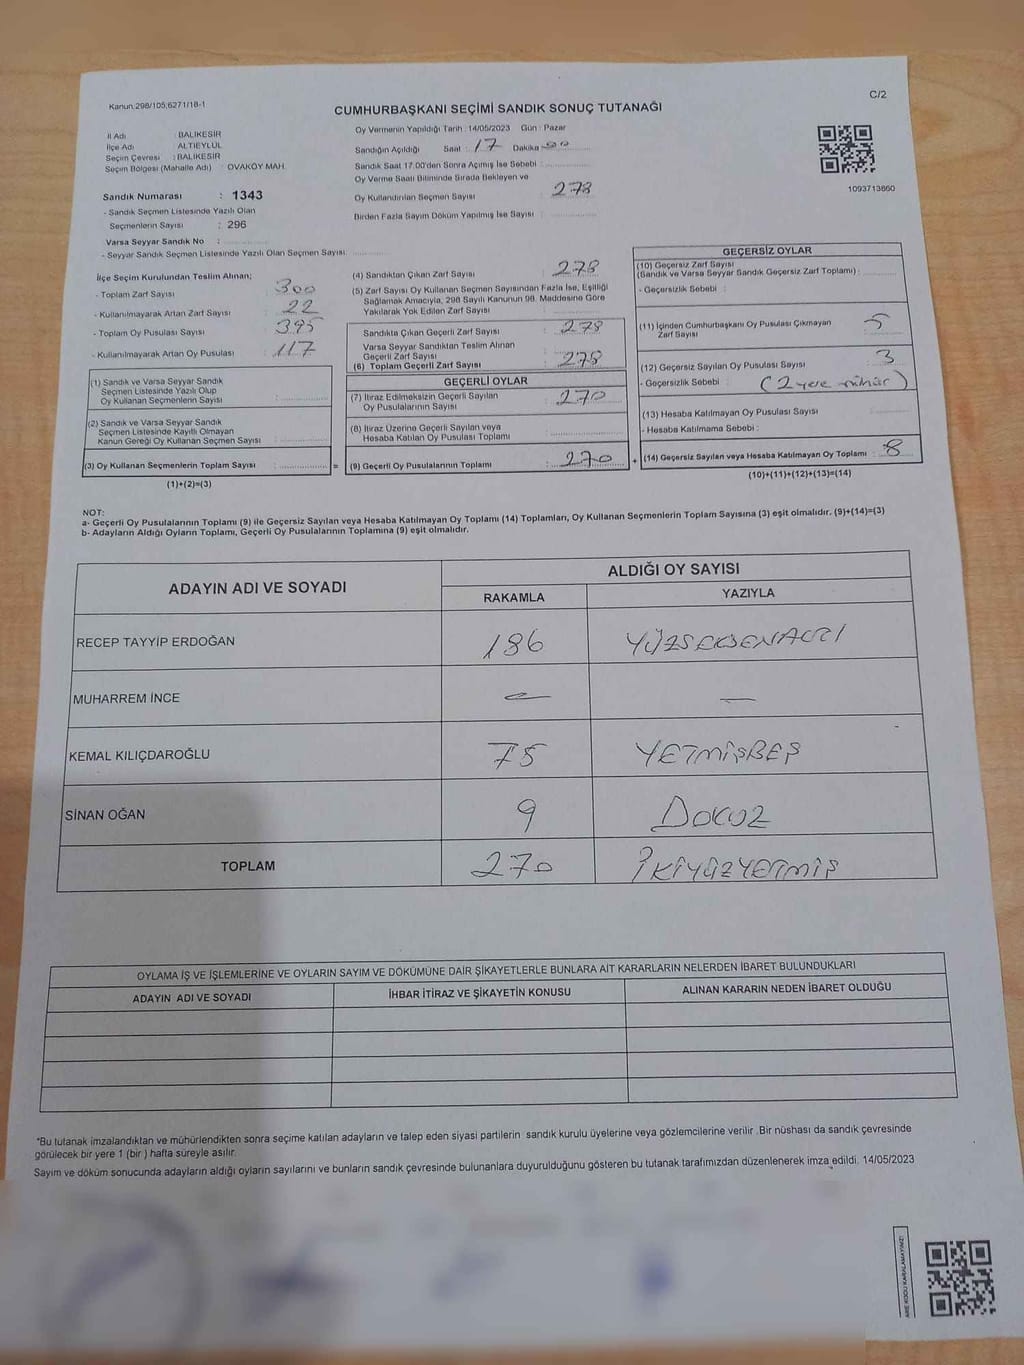 Kanun.298/105;6271/18-1
C/2
CUMHURBAŞKANI SEÇİMİ SANDIK SONUÇ TUTANAĞI
İl Adı : BALIKESİR
İlçe Adı : ALTIEYLÜL
Seçim Çevresi : BALIKESİR
Seçim Bölgesi (Mahalle Adı) : OVAKÖY MAH.
Sandık Numarası : 1343
- Sandık Seçmen Listesinde Yazılı Olan
Seçmenlerin Sayısı : 296
Varsa Seyyar Sandık No :
- Seyyar Sandık Seçmen Listesinde Yazılı Olan Seçmen Sayısı:
Oy Vermenin Yapıldığı Tarih : 14/05/2023 Gün : Pazar
Sandığın Açıldığı Saat : 17 Dakika 00
Sandık Saat 17:00'den Sonra Açımış İse Sebebi :
Oy Verme Saati Bitiminde Sırada Bekleyen ve
Oy Kullandırılan Seçmen Sayısı 278
Birden Fazla Sayım Döküm Yapılmış İse Sayısı :
1093713860
İlçe Seçim Kurulundan Teslim Alınan;
- Toplam Zarf Sayısı : 300
- Kullanılmayarak Artan Zarf Sayısı : 22
- Toplam Oy Pusulası Sayısı : 395
- Kullanılmayarak Artan Oy Pusulası : 117
(1) Sandık ve Varsa Seyyar Sandık
Seçmen Listesinde Yazılı Olup
Oy Kullanan Seçmenlerin Sayısı :
(2) Sandık ve Varsa Seyyar Sandık
Seçmen Listesinde Kayıtlı Olmayan
Kanun Gereği Oy Kullanan Seçmen Sayısı :
(3) Oy Kullanan Seçmenlerin Toplam Sayısı : =
(1)+(2)=(3)
(4) Sandıktan Çıkan Zarf Sayısı : 278
(5) Zarf Sayısı Oy Kullanan Seçmen Sayısından Fazla İse, Eşitliği
Sağlamak Amacıyla, 298 Sayılı Kanunun 98. Maddesine Göre
Yakılarak Yok Edilen Zarf Sayısı :
Sandıkta Çıkan Geçerli Zarf Sayısı : 278
Varsa Seyyar Sandıktan Teslim Alınan
Geçerli Zarf Sayısı :
(6) Toplam Geçerli Zarf Sayısı : 278
GEÇERLİ OYLAR
(7) İtiraz Edilmeksizin Geçerli Sayılan
Oy Pusulalarının Sayısı : 270
(8) İtiraz Üzerine Geçerli Sayılan veya
Hesaba Katılan Oy Pusulası Toplamı :
(9) Geçerli Oy Pusulalarının Toplamı : 270 +
GEÇERSİZ OYLAR
(10) Geçersiz Zarf Sayısı
(Sandık ve Varsa Seyyar Sandık Geçersiz Zarf Toplamı) :
- Geçersizlik Sebebi :
(11) İçinden Cumhurbaşkanı Oy Pusulası Çıkmayan
Zarf Sayısı : 5
(12) Geçersiz Sayılan Oy Pusulası Sayısı : 3
- Geçersizlik Sebebi : (2 yere mühür)
(13) Hesaba Katılmayan Oy Pusulası Sayısı
- Hesaba Katılmama Sebebi :
(14) Geçersiz Sayılan veya Hesaba Katılmayan Oy Toplamı : 8
(10)+(11)+(12)+(13)=(14)
NOT:
a- Geçerli Oy Pusulalarının Toplamı (9) ile Geçersiz Sayılan veya Hesaba Katılmayan Oy Toplamı (14) Toplamları, Oy Kullanan Seçmenlerin Toplam Sayısına (3) eşit olmalıdır. (9)+(14)=(3)
b- Adayların Aldığı Oyların Toplamı, Geçerli Oy Pusulalarının Toplamına (9) eşit olmalıdır.
ADAYIN ADI VE SOYADI ALDIĞI OY SAYISI
RAKAMLA YAZIYLA
RECEP TAYYİP ERDOĞAN 186 YÜZSEKSENALTI
MUHARREM İNCE — —
KEMAL KILIÇDAROĞLU 75 YETMİŞBEŞ
SİNAN OĞAN 9 DOKUZ
TOPLAM 270 İKİYÜZYETMİŞ
OYLAMA İŞ VE İŞLEMLERİNE VE OYLARIN SAYIM VE DÖKÜMÜNE DAİR ŞİKAYETLERLE BUNLARA AİT KARARLARIN NELERDEN İBARET BULUNDUKLARI
ADAYIN ADI VE SOYADI İHBAR İTİRAZ VE ŞİKAYETİN KONUSU ALINAN KARARIN NEDEN İBARET OLDUĞU
*Bu tutanak imzalandıktan ve mühürlendikten sonra seçime katılan adayların ve talep eden siyasi partilerin sandık kurulu üyelerine veya gözlemcilerine verilir .Bir nüshası da sandık çevresinde
görülecek bir yere 1 (bir ) hafta süreyle asılır.
Sayım ve döküm sonucunda adayların aldığı oyların sayılarını ve bunların sandık çevresinde bulunanlara duyurulduğunu gösteren bu tutanak tarafımızdan düzenlenerek imza edildi. 14/05/2023